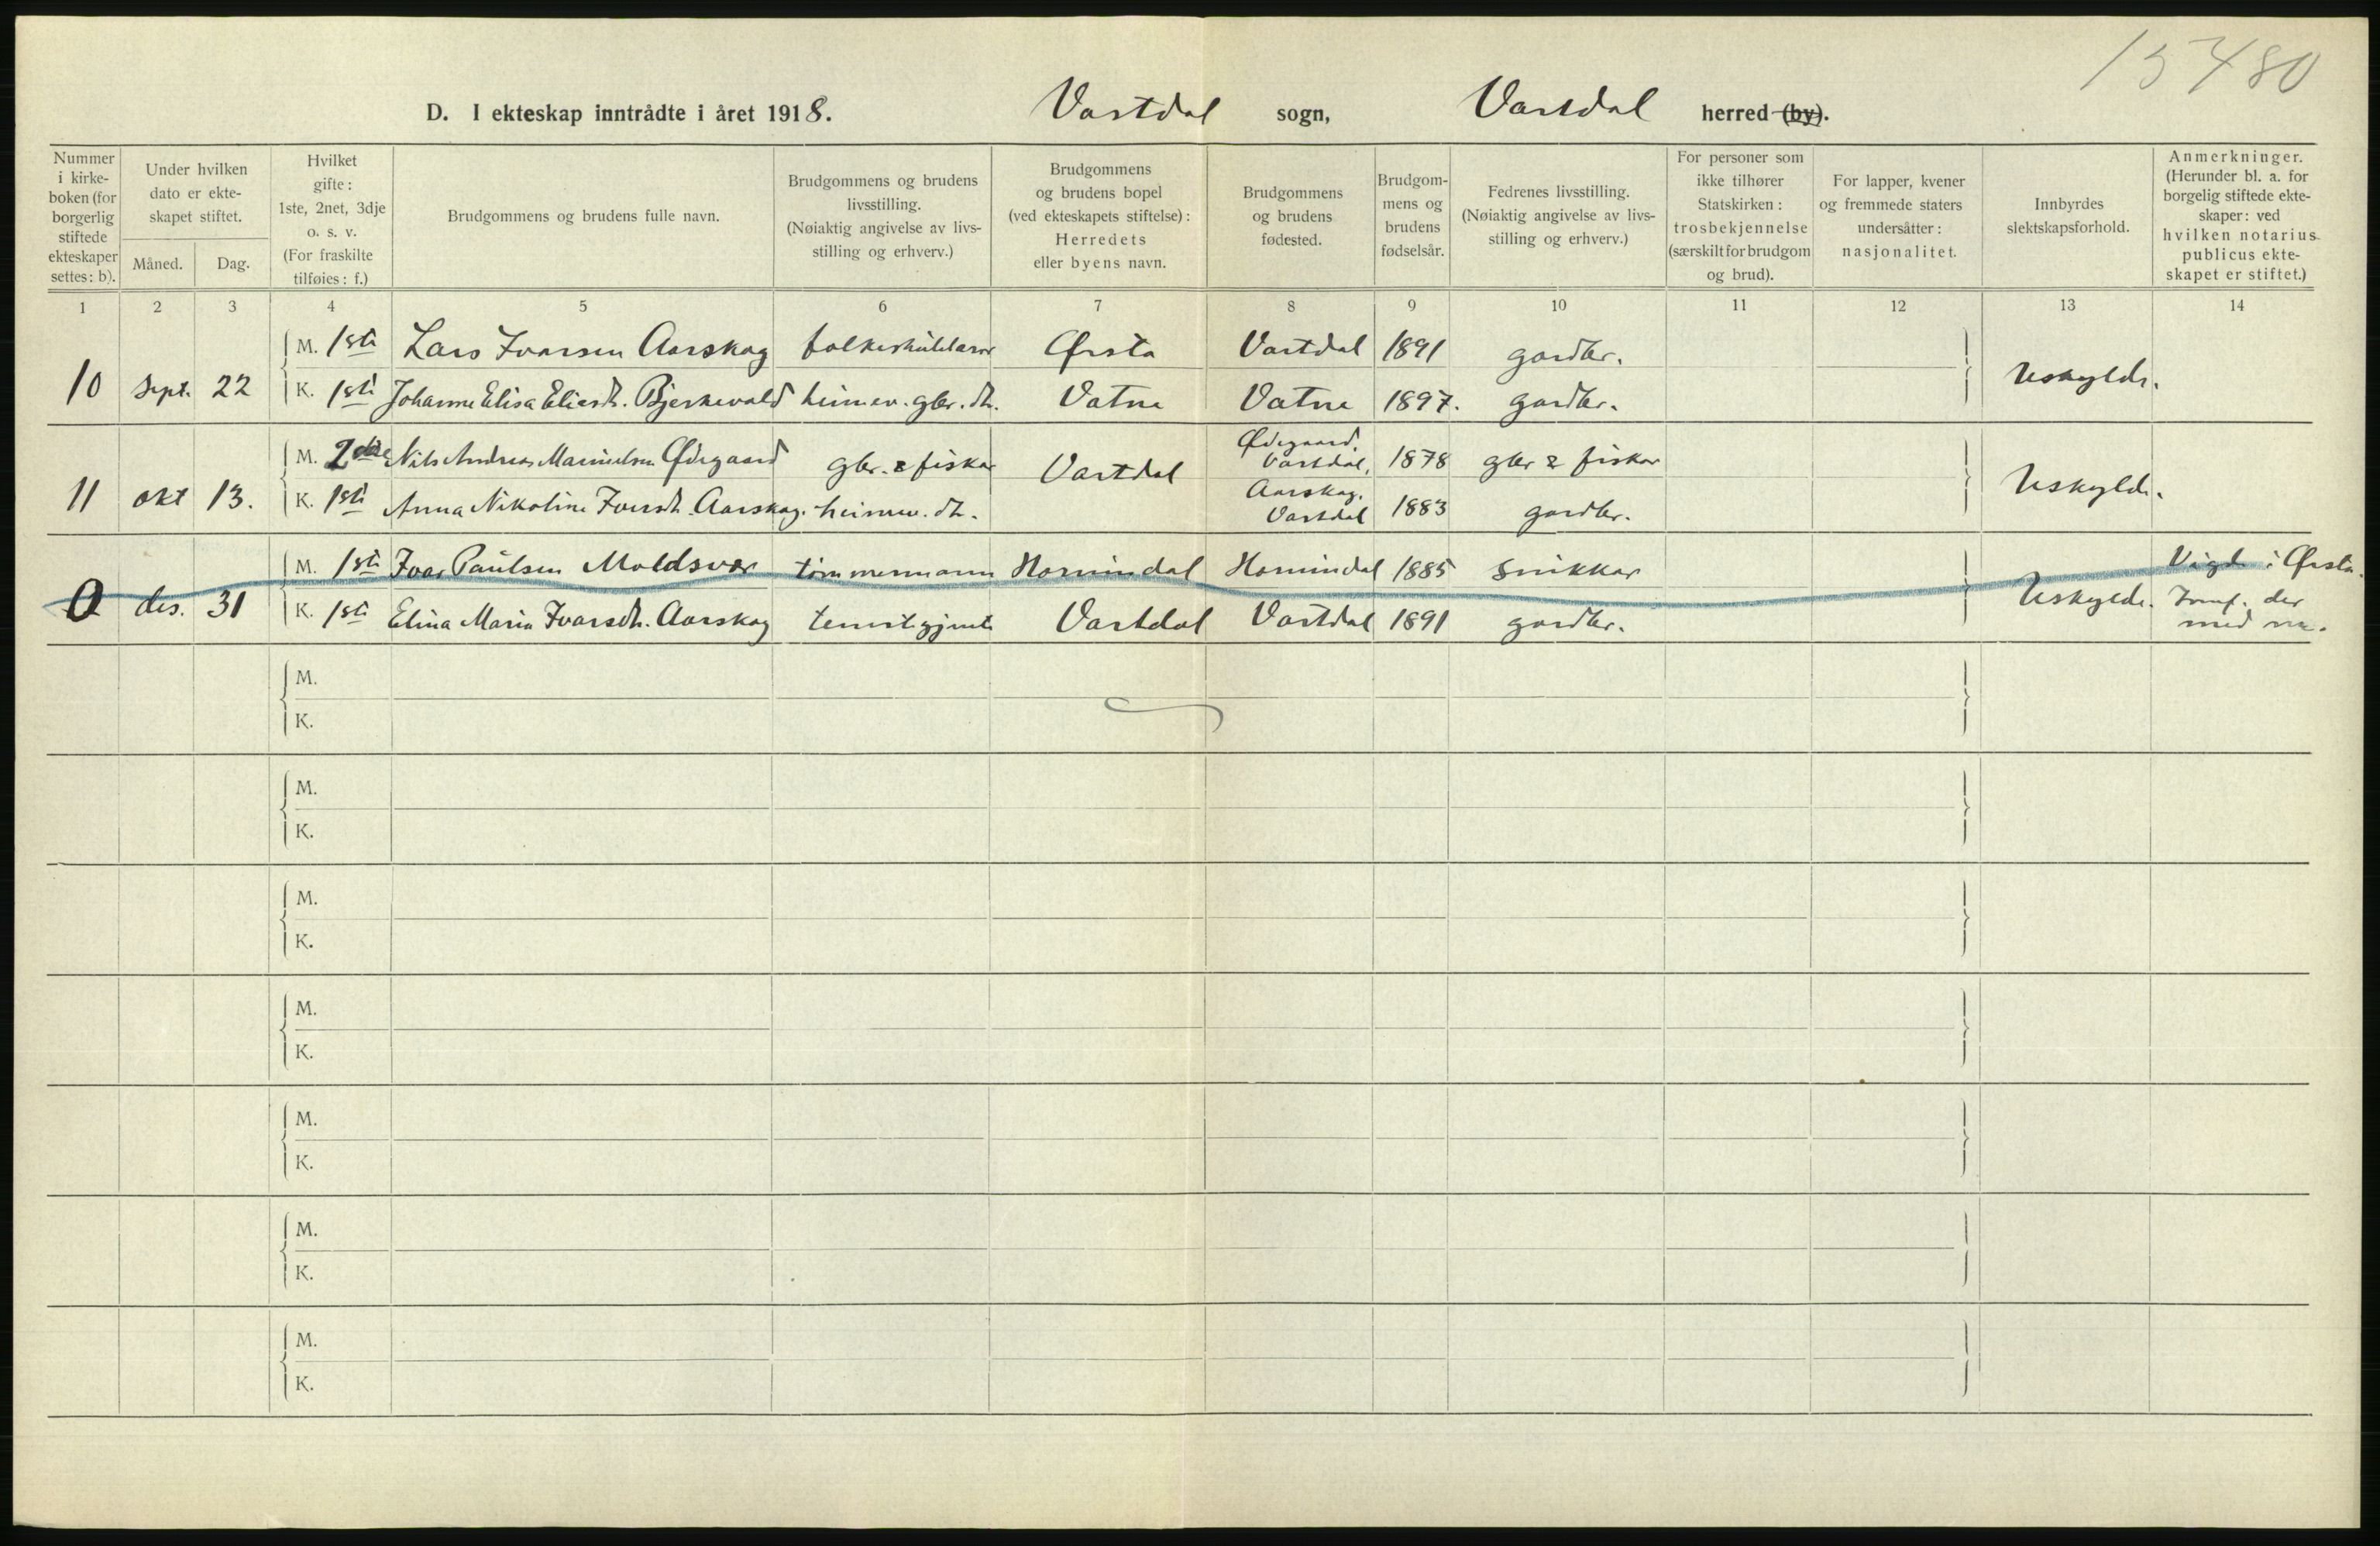 15480
D. I ekteskap inntrådte i året 1918. Vartdal sogn, Vartdal herred (by).
Nummer i kirkeboken (for borgerlig stiftede ekteskaper settes: b).
Under hvilken dato er ekteskapet stiftet.
Måned. Dag.
Hvilket gifte: 1ste, 2net, 3dje o. s. v. (For fraskilte tilføies: f.)
Brudgommens og brudens fulle navn.
Brudgommens og brudens livsstilling. (Nøiaktig angivelse av livsstilling og erhverv.)
Brudgommens og brudens bopel (ved ekteskapets stiftelse): Herredets eller byens navn.
Brudgommens og brudens fødested.
Brudgommens og brudens fødselsår.
Fedrenes livsstilling. (Nøiaktig angivelse av livsstilling og erhverv.)
For personer som ikke tilhører Statskirken: trosbekjennelse (særskilt for brudgom og brud).
For lapper, kvener og fremmede staters undersåtter: nasjonalitet.
Innbyrdes slektskapsforhold.
Anmerkninger. (Herunder bl. a. for borgerlig stiftede ekteskaper: ved hvilken notarius publicus ekteskapet er stiftet.)
1 2 3 4 5 6 7 8 9 10 11 12 13 14
M. 1ste Lars Ivarsen Aarskog folkeskulelærar Ørsta Vartdal 1891 gardbr.
10 sept. 22 K. 1ste Johanne Elisa Eliasdt. Bjerkevold heimev. gbr. dt. Vatne Vatne 1897. gardbr. Uskylde.
M. 2dre Nils Andreas Ødegaard gbr. & fiskar Vartdal Ødegaard, Vartdal, 1878 gbr & fiskar
11 okt 13. K. 1ste Anna Nikoline Iversdt. Aarskog. heimev. dt. Aarskog. Vartdal 1883 gardbr. Uskylde.
M. 1ste Ivar Paulsen Moldsvor tömmermann Hornindal Hornindal 1885 snikkar Vigde i Ørsta.
0 des. 31 K. 1ste Elina Marie Ivarsdt. Aarskog tenestgjente Vartdal Vartdal 1891 gardbr. Uskylde. Jomf. der
med nr.
M.
K.
M.
K.
M.
K.
M.
K.
M.
K.
M.
K.
M.
K.